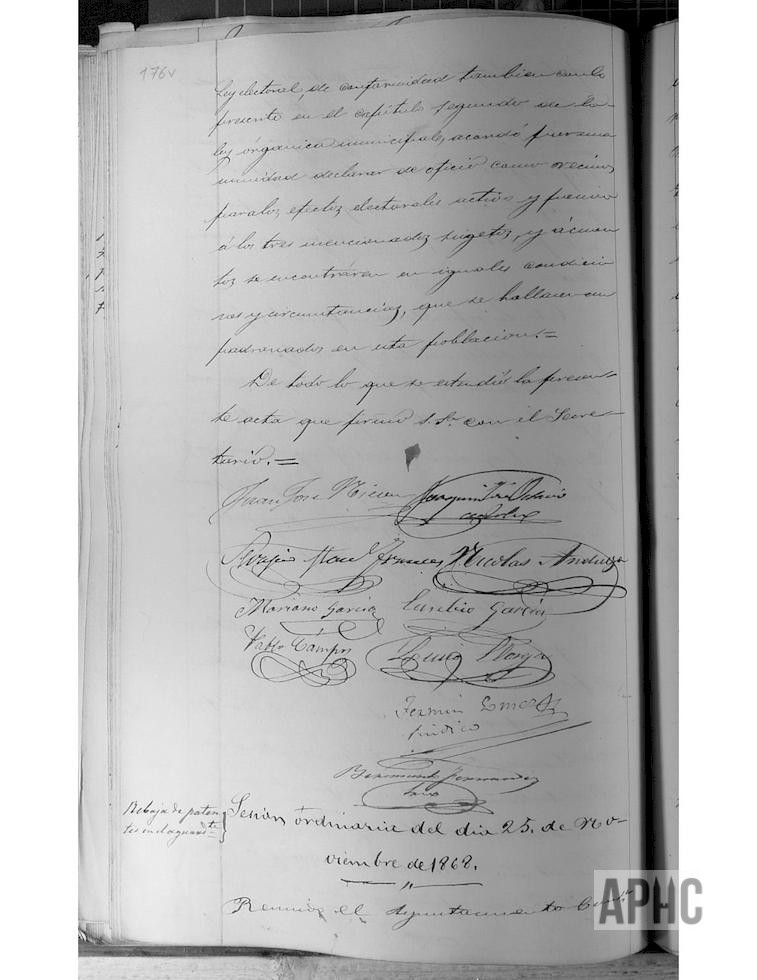 176v
Ley electoral, de conformidad tambien con lo
presente en el capítulo segundo de la
ley organica municipal, acordó por una
nimidad declarar de oficio como vecinos
para los efectos electorales activo y pasivo
á los tres mencionados sugetos, y á cuan
tos se encontráran en iguales condicio
nes y circunstancias, que se hallasen em
padronados en esta poblacion.=
De todo lo que se estendió la presen-
te acta que firmó S. Sª. con el Secre-
tario.=
Juan José Joaquin
Nicolas Andueza
Mariano Garcia Eusebio Garcia
Pablo Campos
Fermin Gomez
Síndico
Fernandez
Srio
Rebaja de paten
tes en el aguardte
Sesion ordinaria del dia 25. de No-
viembre de 1868.
Reunido el Ayuntamiento
APHC